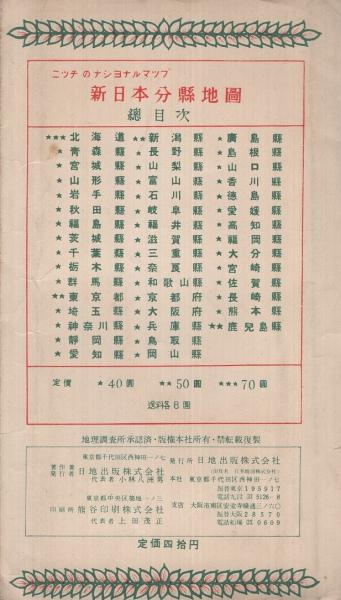 ニツチのナシヨナルマツプ
新日本分縣地圖
總目次
★★★北海道 ★★新潟縣 ★廣島縣
★青森縣 ★★長野縣 ★島根縣
★宮城縣 ★山梨縣 ★山口縣
★山形縣 ★富山縣 ★香川縣
★岩手縣 ★石川縣 ★德島縣
★秋田縣 ★岐阜縣 ★愛媛縣
★福島縣 ★福井縣 ★高知縣
★茨城縣 ★滋賀縣 ★福岡縣
★千葉縣 ★三重縣 ★大分縣
★栃木縣 ★奈良縣 ★宮崎縣
★群馬縣 ★和歌山縣 ★佐賀縣
★★東京都 ★京都府 ★長崎縣
★埼玉縣 ★大阪府 ★熊本縣
★神奈川縣 ★兵庫縣 ★★鹿兒島縣
★靜岡縣 ★鳥取縣
★愛知縣 ★岡山縣
定價 ★40圓 ★★50圓 ★★★70圓
送料各8圓
地理調査所承認済・版権本社所有・禁転載復製
東京都千代田区西神田一ノ七
著作兼発行者 日地出版株式会社
代表者 小林八洲男
東京都中央区築地一ノ三
印刷所 熊谷印刷株式会社
代表者 上田茂正
発行所 日地出版株式会社
本社 東京都千代田区西神田一ノ七
振替東京195917
電話九段(33)5126-8
支店 大阪市南区安堂寺橋通三ノ六〇
振替大阪28370
電話船場(26)0609
定価四拾円